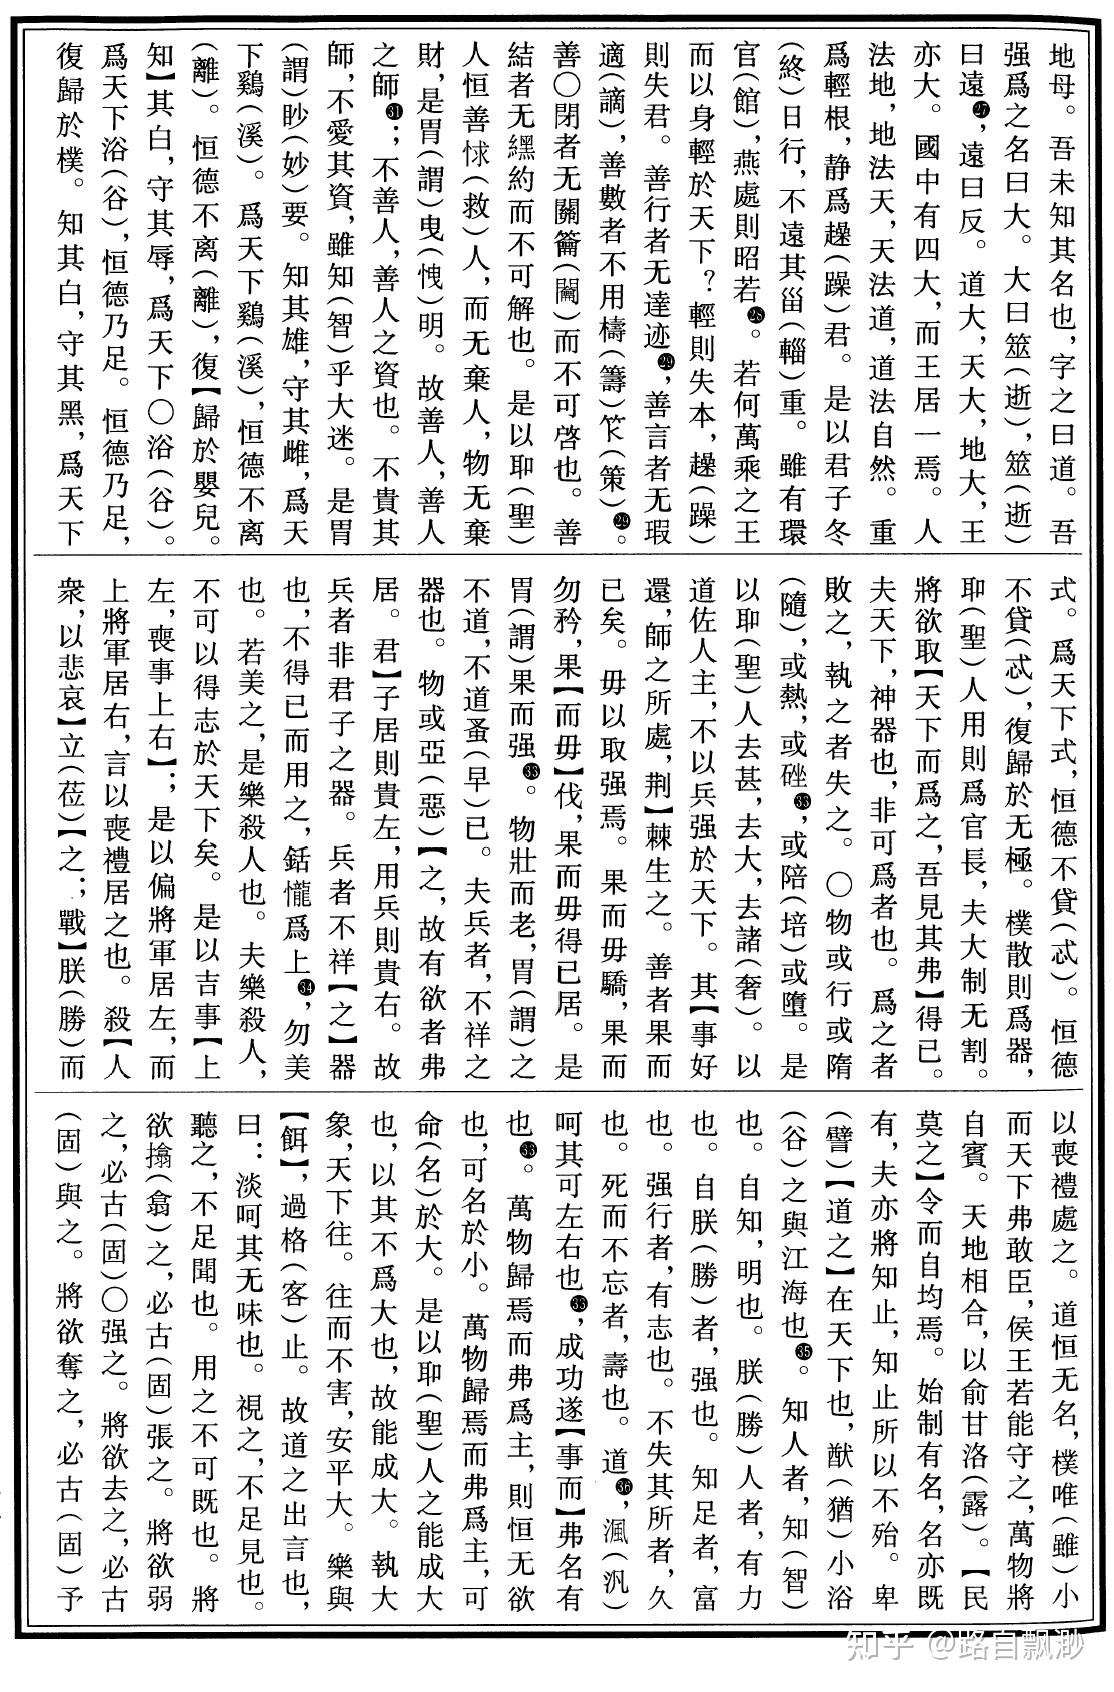 地母。吾未知其名也，字之曰道。吾
强爲之名曰大。大曰筮(逝)，筮(逝)
曰遠㉗，遠曰反。道大，天大，地大，王
亦大。國中有四大，而王居一焉。人
法地，地法天，天法道，道法自然。重
爲輕根，静爲趮(躁)君。是以君子冬
(終)日行，不遠其甾(輜)重。雖有環
官(館)，燕處則昭若㉘。若何萬乘之王
而以身輕於天下？輕則失本，趮(躁)
則失君。善行者无達迹㉙，善言者无瑕
適(謫)，善數者不用檮(籌)䇲(策)㉙。
善〇閉者无關籥(闢)而不可啓也。善
結者无纆約而不可解也。是以耶(聖)
人恒善㤹(救)人，而无棄人，物无棄
財，是胃(謂)曳(愧)明。故善人，善人
之師㉛；不善人，善人之資也。不貴其
師，不愛其資，雖知(智)乎大迷。是胃
(謂)眇(妙)要。知其雄，守其雌，爲天
下鷄(溪)。爲天下鷄(溪)，恒德不离
(離)。恒德不离(離)，復【歸於嬰兒。
知】其白，守其辱，爲天下〇浴(谷)。
爲天下浴(谷)，恒德乃足。恒德乃足，
復歸於樸。知其白，守其黑，爲天下
式。爲天下式，恒德不貸(忒)。恒德
不貸(忒)，復歸於无極。樸散則爲器，
耶(聖)人用則爲官長，夫大制无割。
將欲取【天下而爲之，吾見其弗】得已。
夫天下，神器也，非可爲者也。爲之者
敗之，執之者失之。〇物或行或隋
(隨)，或熱，或䂳㉝，或陪(培)或墮。是
以耶(聖)人去甚，去大，去諸(奢)。以
道佐人主，不以兵强於天下。其【事好
還，師之所處，荆】棘生之。善者果而
已矣。毋以取强焉。果而毋驕，果而
勿矜，果【而毋】伐，果而毋得已居。是
胃(謂)果而强㉝。物壯而老，胃(謂)之
不道，不道蚤(早)已。夫兵者，不祥之
器也。物或亞(惡)【之，故有欲者弗
居。君】子居則貴左，用兵則貴右。故
兵者非君子之器。兵者不祥【之】器
也，不得已而用之，銛㦕爲上㉞，勿美
也。若美之，是樂殺人也。夫樂殺人，
不可以得志於天下矣。是以吉事【上
左，喪事上右】；是以偏將軍居左，而
上將軍居右，言以喪禮居之也。殺【人
衆，以悲哀】立(莅)【之；戰】朕(勝)而
以喪禮處之。道恒无名，樸唯(雖)小
而天下弗敢臣，侯王若能守之，萬物將
自賓。天地相合，以俞甘洛(露)。【民
莫之】令而自均焉。始制有名，名亦既
有，夫亦將知止，知止所以不殆。卑
(譬)【道之】在天下也，猷(猶)小浴
(谷)之與江海也㉟。知人者，知(智)
也。自知，明也。朕(勝)人者，有力
也。自朕(勝)者，强也。知足者，富
也。强行者，有志也。不失其所者，久
也。死而不忘者，壽也。道㊱，渢(汎)
呵其可左右也㉝，成功遂【事而】弗名有
也㉝。萬物歸焉而弗爲主，則恒无欲
也，可名於小。萬物歸焉而弗爲主，可
命(名)於大。是以耶(聖)人之能成大
也，以其不爲大也，故能成大。執大
象，天下往。往而不害，安平大。樂與
【餌】，過格(客)止。故道之出言也，
曰：淡呵其无味也。視之，不足見也。
聽之，不足聞也。用之不可既也。將
欲擒(翕)之，必古(固)張之。將欲弱
之，必古(固)〇强之。將欲去之，必古
(固)與之。將欲奪之，必古(固)予
知乎 @路自飘渺